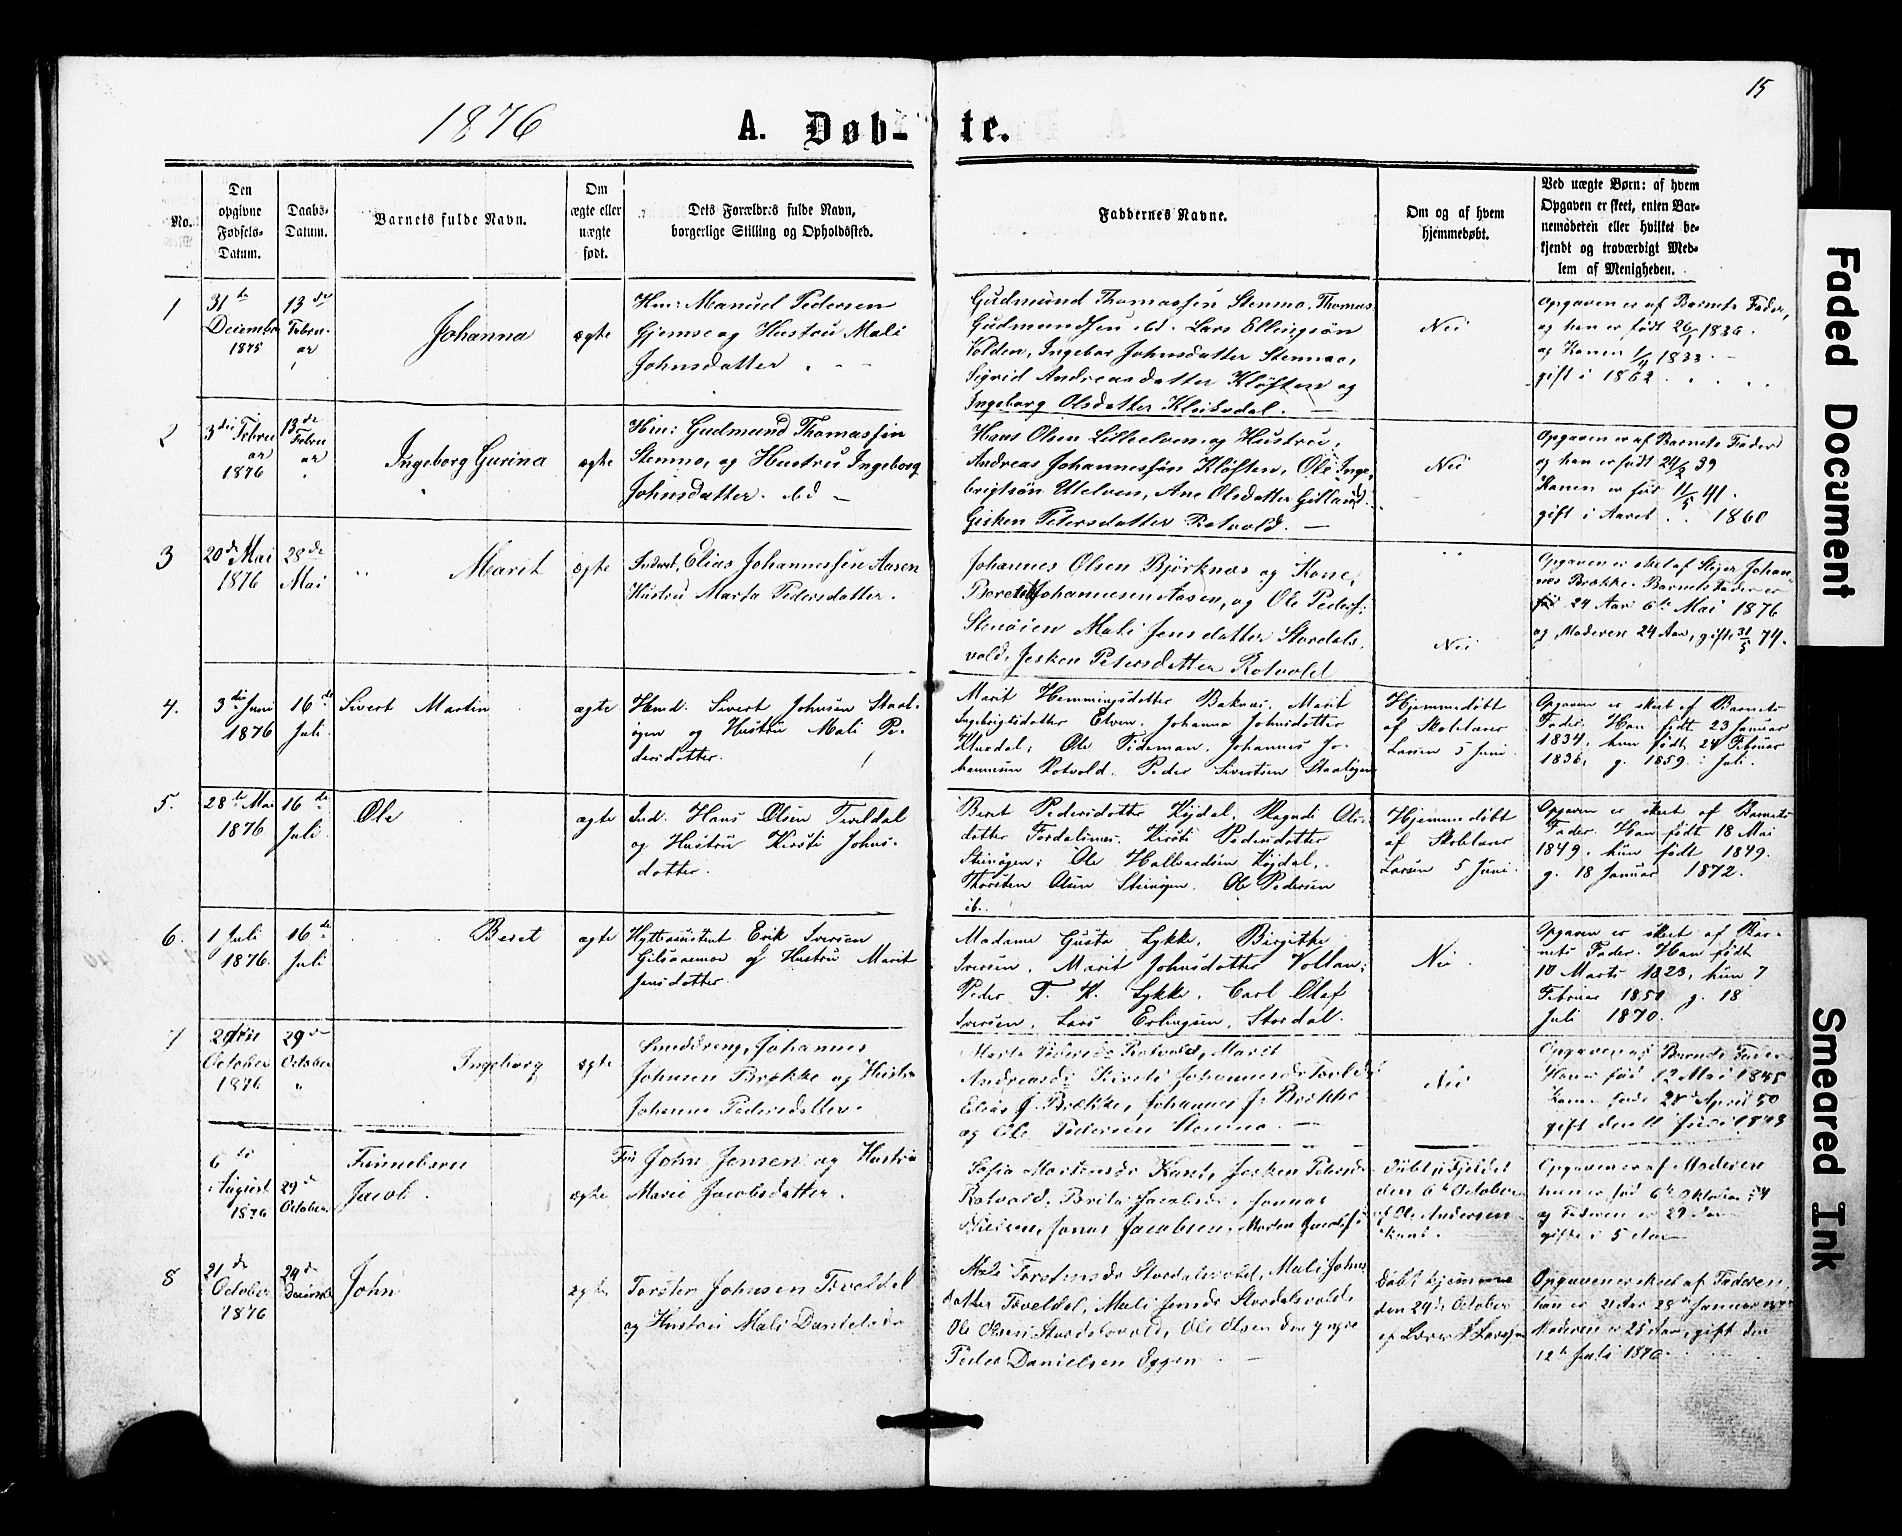 15
1876
A. Døb-
te.
No.
Den opgivne Fødsels-Datum.
Daabs-Datum.
Barnets fulde Navn.
Om ægte eller uægte født.
Dets Forældres fulde Navn,
borgerlige Stilling og Opholdssted.
Faddernes Navne.
Om og af hvem
hjemmedøbt.
Ved uægte Børn: af hvem
Opgaven er skeet, enten Bar-
nemoderen eller hvilket be-
kjendt og troværdigt Med-
lem af Menigheden.
1
31te
December
1875
13de
Febru-
ar
Johanna
ægte
Hm: Manuel Pedersen
Gjemse og Hustru Mali
Johnsdatter
Gudmund Thomassen Stenmo, Thomas
Gudmundsen ibd. Lars Ellingsøn
Volden, Ingebor Johnsdatter Stenmo,
Sigrid Andreasdatter Kløften og
Ingeborg Olsdatter
Nei
Opgaven er af Barnets Fader,
og han er født 26/1 1836.
og Konen 1/4 1833.
gift i 1862
2
3die Febru
ar
1876
13de
Febru
ar
Ingeborg Gurina
ægte
Hm: Gudmund Thomassen
Stenmo, og Hustru Ingeborg
Johnsdatter. ibd
Hans Olsen Lillelven og Hustru,
Andreas Johannessøn Kløften, Ole Inge-
brigtsøn Utelven, Ane Olsdatter Gilland.
Gisken Petersdatter Rotvold.
Nei
Opgaven er af Barnets Fader
og han er født 39
Konen er før 11/5 41.
gift i Aaret 1860
3
20de Mai
1876
28de
Mai
Marit
ægte
Inderst, Elias Johannessen Aasen
Hustru Marta Pedersdatter.
Johannes Olsen Bjørknes og Kone,
Johannesen Aasen, og Ole Peders:
Stenøien Mali Jensdatter Stordals-
vold, Jesken Petersdatter Rotvold
Nei
Opgaven er skel af Johan-
nes Brække. Barnets Fader er
24 Aar 6te Mai 1876
og Moderen 24 Aar, gift 31/5 74.
4.
3die Juni
1876
16de
Juli
Sivert Martin
ægte
Hmd. Sivert Johnsen Staal-
øgen og Hustru Mali Pe-
dersdatter.
Marit Hemmingsdatter Marit
Ingebrigtsdatter Elven. Johanna Johnsdatter
Ole Tideman. Johannes Jo-
hannesen Rotvold. Peder Sivertsen Staaløgen
Hjemmedøbt
af Skolelærer
Larsen 5 Juni.
Opgaven er skeet af Barnets
Fader. Han født 23 Januar
1834, hun født 24 Februar
1836, g. 1859 i Juli.
5.
28de Mai
1876
16de
Juli
Ole
ægte
Ind. Hans Olsen Tveldal
og Hustru Kirsti Johns-
datter.
Beret Pedersdatter Kojdal. Ragndi Ols-
datter Kirsti Pedersdatter
Steinøgen; Ole Halvardsen Kojdal,
Thorsten Olsen Steinøgen. Ole Pedersen
ib.
Hjemmedøbt
af Skolelærer
Larsen 5 Juni.
Opgaven er skeet af Barnets
Fader. Han født 18 Mai
1849. hun født 1849.
g. 18 Januar 1872.
6.
1 Juli
1876.
16de
Juli
Beret
ægte
Hytteassistent Erik Iversen
Gilsaaemoe og Hustru Marit
Jensdatter.
Madame Gusta Lykke. Birgithe
Iversen. Marit Johnsdatter Vollan;
Peder T. K. Lykke. Carl Olaf
Iversen. Lars Erlingsen, Stordal.
Nei.
Opgaven er skeet af Bar-
nets Fader. Han født
10 Marts 1823, hun 7
Februar 1850 g. 18
Juli 1870.
7
October
1876
29de
October
Ingeborg
ægte
Smeddreng, Johannes
Johnsen Brække og Hustru
Johanna Pedersdatter.
Marta Rotvold, Marit
Andreasdr Kirsti Johannesdr Tveldal
Elias J. Brække, Johannes J. Brække
og Ole Pedersen Stenmo.
Nei
Opgaven af Barnets Fader
Han er fød 12 Mai 1845
Konen fød 28 April 50
gift den 11 Juni 1873
6te
August
1876
29de
October
Tvinnebarn
Jacob.
ægte
John Jensen og Hustru
Marie Jacobsdatter.
Sofia Martensdr Kant, Jesken Petersdr
Rotvold, Brita Jacobsdr, Jonas
Nielsen, Jonas Jacobsen, Morten
Døbt i Fjeldet
den 6te October
af Ole Andersen
Kant.
Opgaven er af Moderen
hun er fød 6te Oktober 54
og Faderen er 29 Aar
gifte i 5 Aar
8
21de
October
1876
24de
John
ægte
Torsten Johnsen Tveldal
og Hustru Mali Danielsdr
Mali Torstensdr Stordalsvold, Mali Johns
datter Tveldal, Mali Jensdr Stordalsvold
Ole Olsen Stordalsvold, Ole Olsen den yngre
Peder Danielsen Eggen
Døbt hjemme
den 24de October
af Lærer L Larsen
Opgaven er skeet af Faderen,
han er 21 Aar 28de Januar
Moderen er 25 Aar, gift den
12te Juli 1876.
Faded Document
Smeared Ink